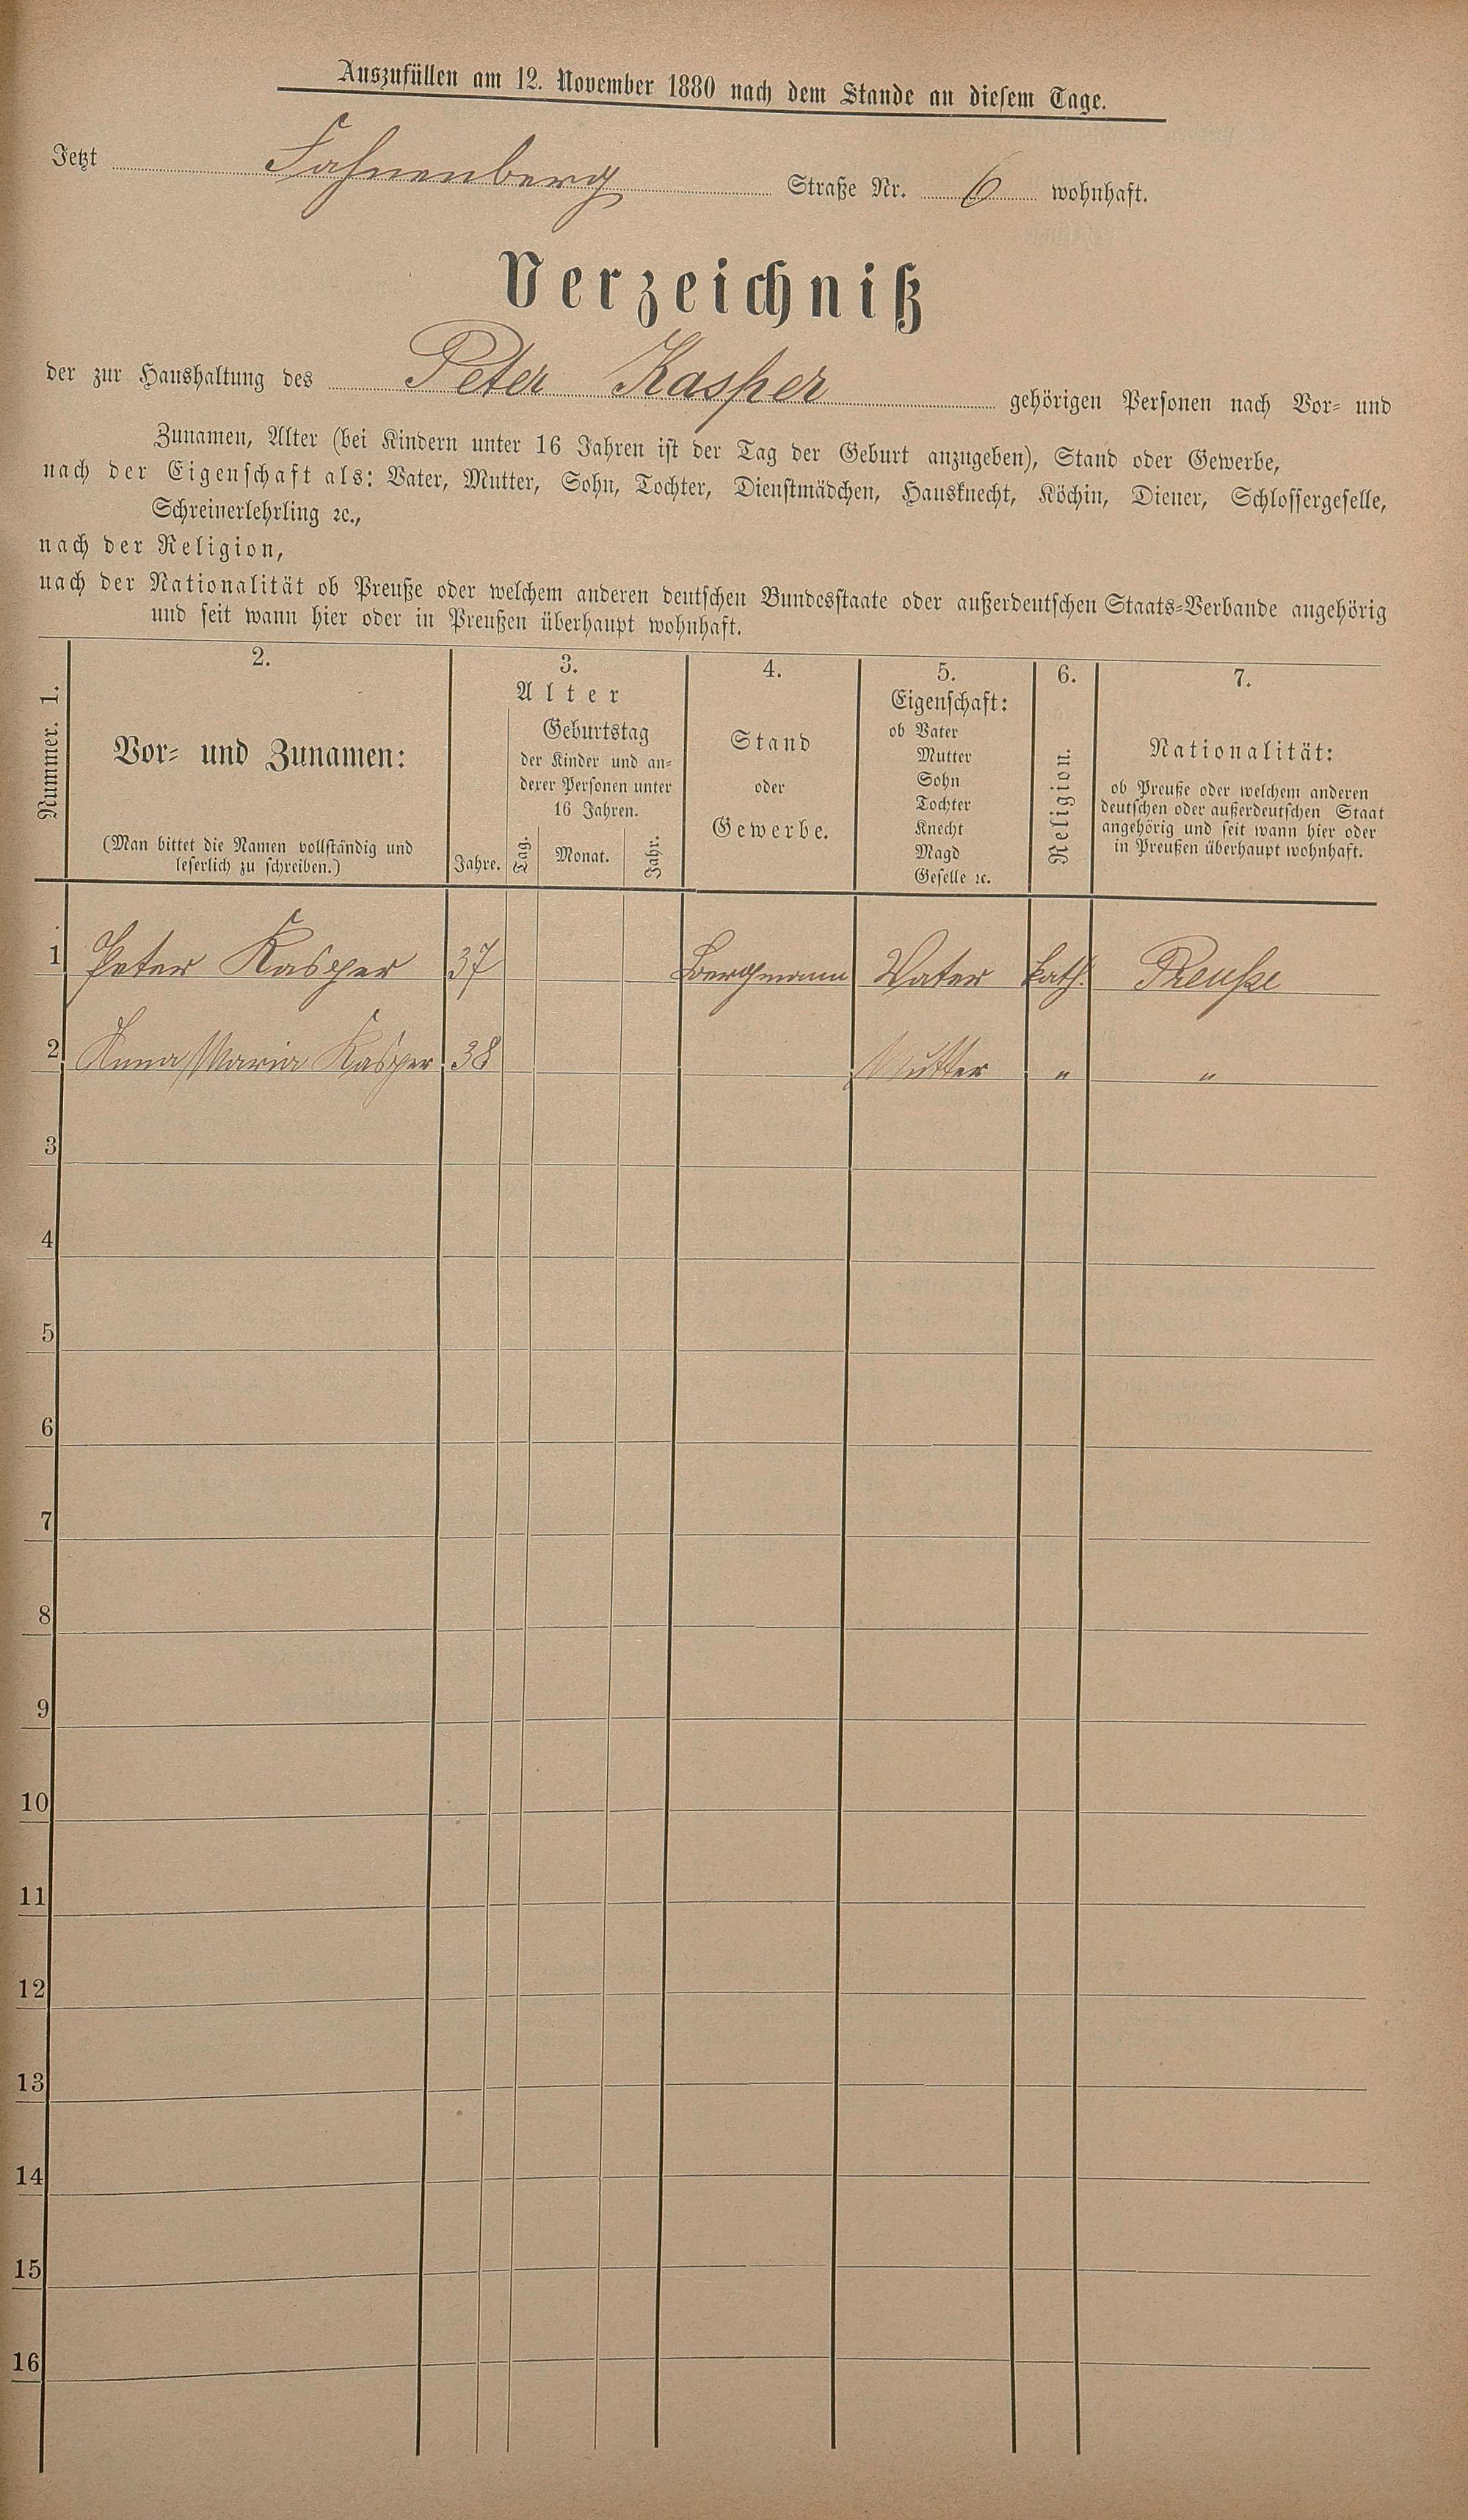 Auszufüllen am 12. November 1880 nach dem Stande an diesem Tage.
Jetzt Fahnenberg Straße Nr. 6 wohnhaft.
Verzeichniß
der zur Haushaltung des Peter Kasper gehörigen Personen nach Vor- und
Zunamen, Alter (bei Kindern unter 16 Jahren ist der Tag der Geburt anzugeben), Stand oder Gewerbe,
nach der Eigenschaft als: Vater, Mutter, Sohn, Tochter, Dienstmädchen, Hausknecht, Köchin, Diener, Schlossergeselle,
Schreinerlehrling ꝛc.,
nach der Religion,
nach der Nationalität ob Preuße oder welchem anderen deutschen Bundesstaate oder außerdeutschen Staats-Verbande angehörig
und seit wann hier oder in Preußen überhaupt wohnhaft.
Nummer. 1.
2.
Vor- und Zunamen:
(Man bittet die Namen vollständig und
leserlich zu schreiben.)
3.
Alter
Jahre.
Geburtstag
der Kinder und an-
derer Personen unter
16 Jahren.
Tag. Monat. Jahr.
4.
Stand
oder
Gewerbe.
5.
Eigenschaft:
ob Vater
Mutter
Sohn
Tochter
Knecht
Magd
Geselle ꝛc.
6.
Religion.
7.
Nationalität:
ob Preuße oder welchem anderen
deutschen oder außerdeutschen Staat
angehörig und seit wann hier oder
in Preußen überhaupt wohnhaft.
1 Peter Kasper 37 Bergmann Vater kath. Preuße
2 Anna Maria Kasper 38 Mutter " "
3
4
5
6
7
8
9
10
11
12
13
14
15
16